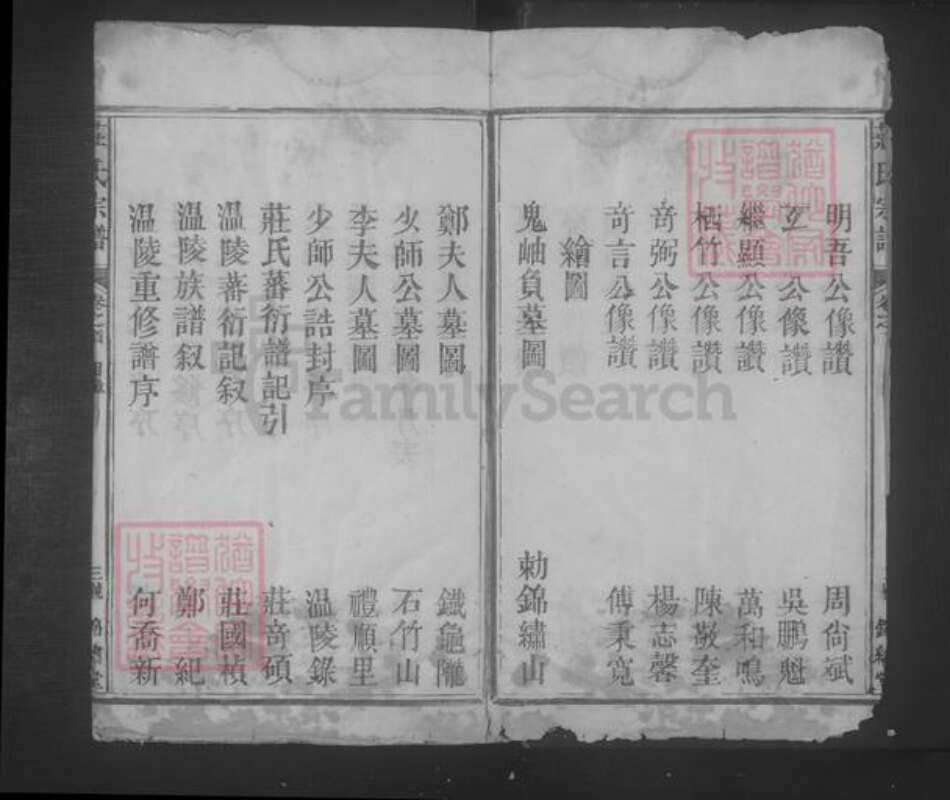 明吾公像讚　周尙斌
公像讚　吳鵬魁
繼顯公像讚　萬和鳴
栖竹公像讚　陳敬奎
奇弼公像讚　楊志馨
奇言公像讚　傅秉寬
繪圖
鬼岫負墓圖　勅錦繡山
鄭夫人墓圖　鐵龜隴
少師公墓圖　石竹山
李夫人墓圖　禮順里
少師公誥封序　温陵錄
莊氏蕃衍譜記引　莊奇碩
温陵蕃衍記叙　莊國楨
温陵族譜叙　鄭紀
温陵重修譜序　何喬新
莊氏宗譜
FamilySearch